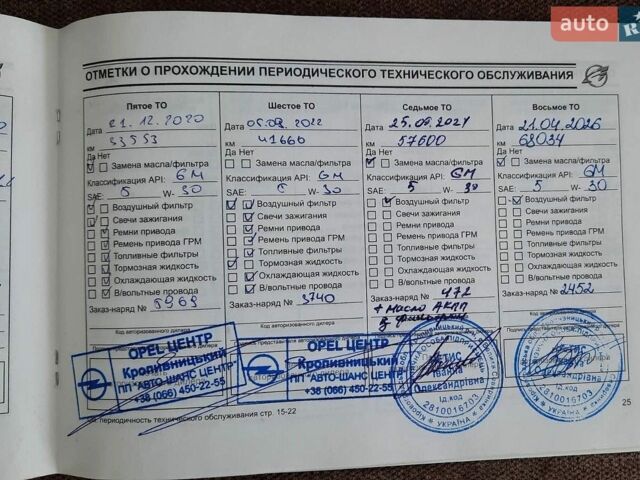 auto
R
ОТМЕТКИ О ПРОХОЖДЕНИИ ПЕРИОДИЧЕСКОГО ТЕХНИЧЕСКОГО ОБСЛУЖИВАНИЯ
Пятое ТО
Дата 21.12.2020
км 33553
Да Нет
Замена масла/фильтра
Классификация API: GM
SAE: 5 W- 30
Воздушный фильтр
Свечи зажигания
Ремни привода
Ремень привода ГРМ
Топливные фильтры
Тормозная жидкость
Охлаждающая жидкость
В/вольтные провода
Заказ-наряд № 5969
Код авторизованного дилера
OPEL ЦЕНТР
Кропивницький
ПП "АВТО-ШАНС ЦЕНТР"
+38 (066) 450-22-55
Шестое ТО
Дата 05.09.2022
км 41660
Да Нет
Замена масла/фильтра
Классификация API: GM
SAE: 5 W- 30
Воздушный фильтр
Свечи зажигания
Ремни привода
Ремень привода ГРМ
Топливные фильтры
Тормозная жидкость
Охлаждающая жидкость
В/вольтные провода
Заказ-наряд № 3740
Код авторизованного дилера
OPEL ЦЕНТР
Кропивницький
ПП "АВТО-ШАНС ЦЕНТР"
+38 (066) 450-22-55
Седьмое ТО
Дата 25.09.2024
км 57600
Да Нет
Замена масла/фильтра
Классификация API: GM
SAE: 5 W- 30
Воздушный фильтр
Свечи зажигания
Ремни привода
Ремень привода ГРМ
Топливные фильтры
Тормозная жидкость
Охлаждающая жидкость
В/вольтные провода
Заказ-наряд № 472
+ Масло АКПП
Іванна
Олександрівна
Ід.код
2810016703
УКРАЇНА
Восьмое ТО
Дата 21.04.2026
км 68034
Да Нет
Замена масла/фильтра
Классификация API: GM
SAE: 5 W- 30
Воздушный фильтр
Свечи зажигания
Ремни привода
Ремень привода ГРМ
Топливные фильтры
Тормозная жидкость
Охлаждающая жидкость
В/вольтные провода
Заказ-наряд № 2452
Ід.код
2810016703
УКРАЇНА
периодичность технического обслуживания стр. 15-22
25